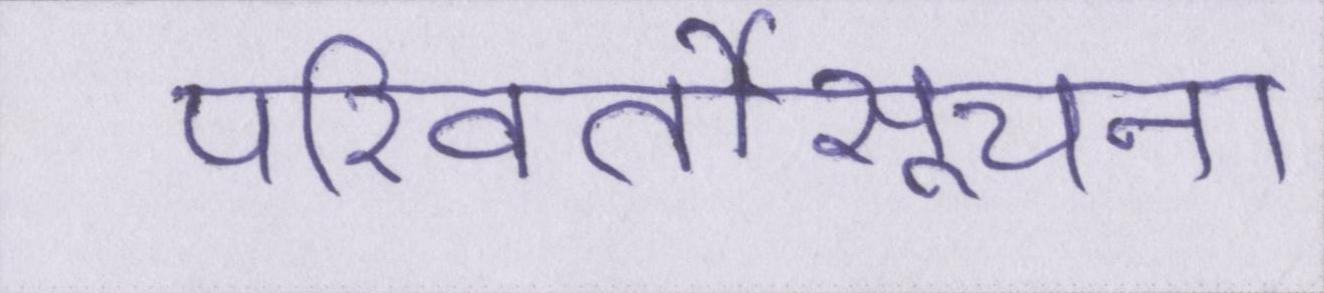 परिवर्तोसूचना